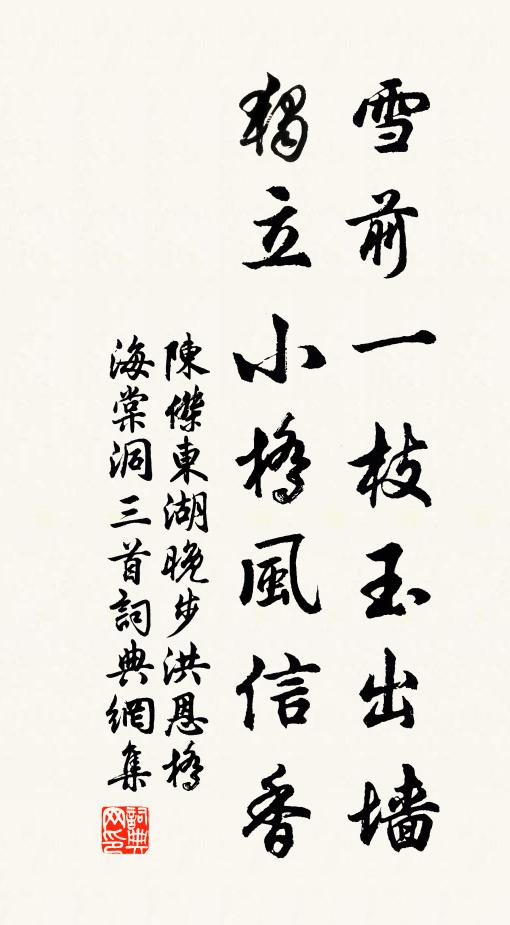 雪前一枝玉出墙
獨立小橋風信香
陳傑東湖晚步洪恩橋
海棠洞三首詞典網集
詞典
网印